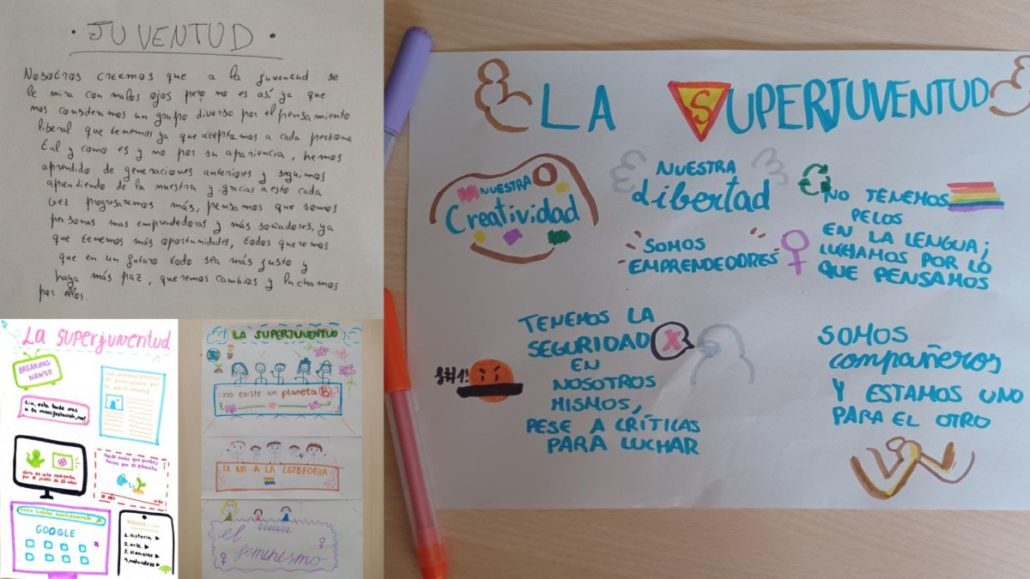 • JUVENTUD •
Nosotros creemos que a la juventud se
le mira con malos ojos pero no es así ya que
nos consideramos un grupo diverso por el pensamiento
liberal que tenemos ya que aceptamos a cada persona
tal y como es y no por su apariencia, hemos
aprendido de generaciones anteriores y seguimos
aprendiendo de la nuestra y gracias a esto cada
vez progresaremos más, pensamos que somos
personas mas emprendedoras y más soñadores, ya
que tenemos más oportunidades, todos queremos
que en un futuro todo sea más justo y
haya más paz, queremos cambios y luchamos
por ellos
La superjuventud
BREAKING
NEWS!!
GOOGLE
1. historia
2. arte
LA SUPERJUVENTUD
no existe un planeta B
DI NO A LA LGTBFOBIA
el
feminismo
LA SUPERJUVENTUD
NUESTRA
Creatividad
NUESTRA
Libertad
SOMOS
EMPRENDEDORES
NO TENEMOS
PELOS
EN LA LENGUA;
LUCHAMOS POR LO
QUE PENSAMOS
§#1!
TENEMOS LA
SEGURIDAD
EN
NOSOTROS
MISMOS,
PESE A CRÍTICAS
PARA LUCHAR
X
SOMOS
compañeros
Y ESTAMOS UNO
PARA EL OTRO